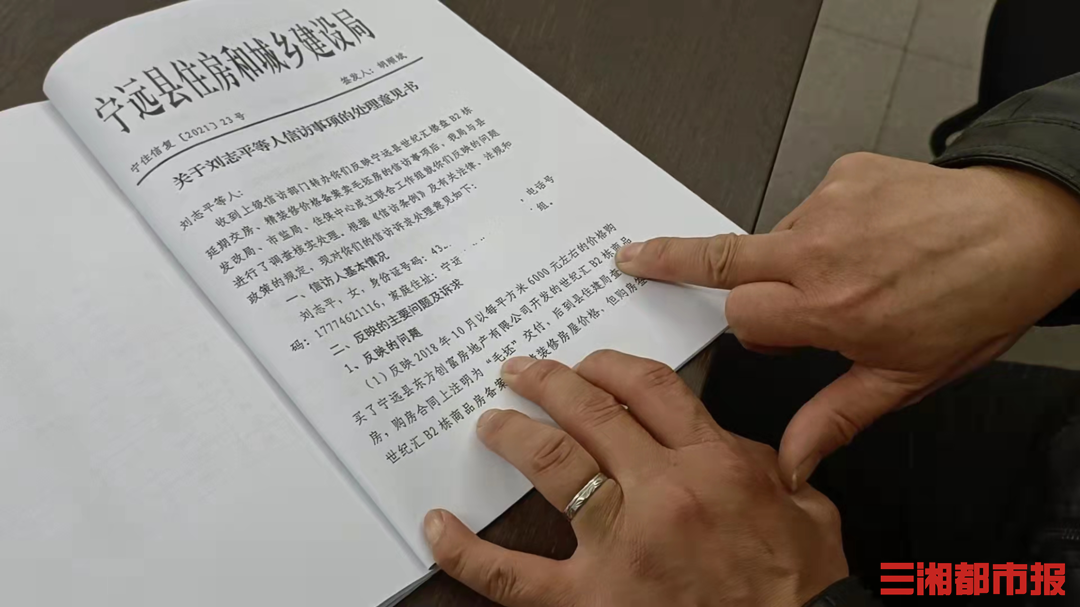 宁远县住房和城乡建设局
宁住信复〔2021〕23号
签发人：胡顺斌
关于刘志平等人信访事项的处理意见书
刘志平等人：
收到上级信访部门转办你们反映宁远县世纪汇楼盘B2栋
延期交房、精装修价格备案卖毛坯房的信访事项后，我局与县
发改局、市监局、住保中心成立联合工作组就你们反映的问题
进行了调查核实处理，根据《信访条例》及有关法律、法规和
政策的规定，现对你们的信访诉求处理意见如下：
一、信访人基本情况
刘志平，女，身份证号码：43 、电话号
码：17774621116，家庭住址：宁远 组。
二、反映的主要问题及诉求
1、反映的问题
（1）反映2018年10月以每平方米6000元左右的价格购
买了宁远县东方创富房地产有限公司开发的世纪汇B2栋商品
房，购房合同上注明为“毛坯”交付，后到县住建局查
世纪汇B2栋商品房备案 装修房屋价格，但购房
三湘都市报